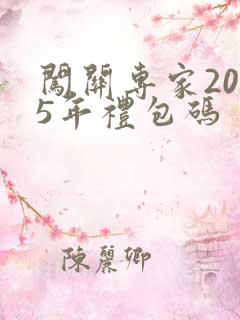 闖關專家20
5年禮包碼
陳麗卿